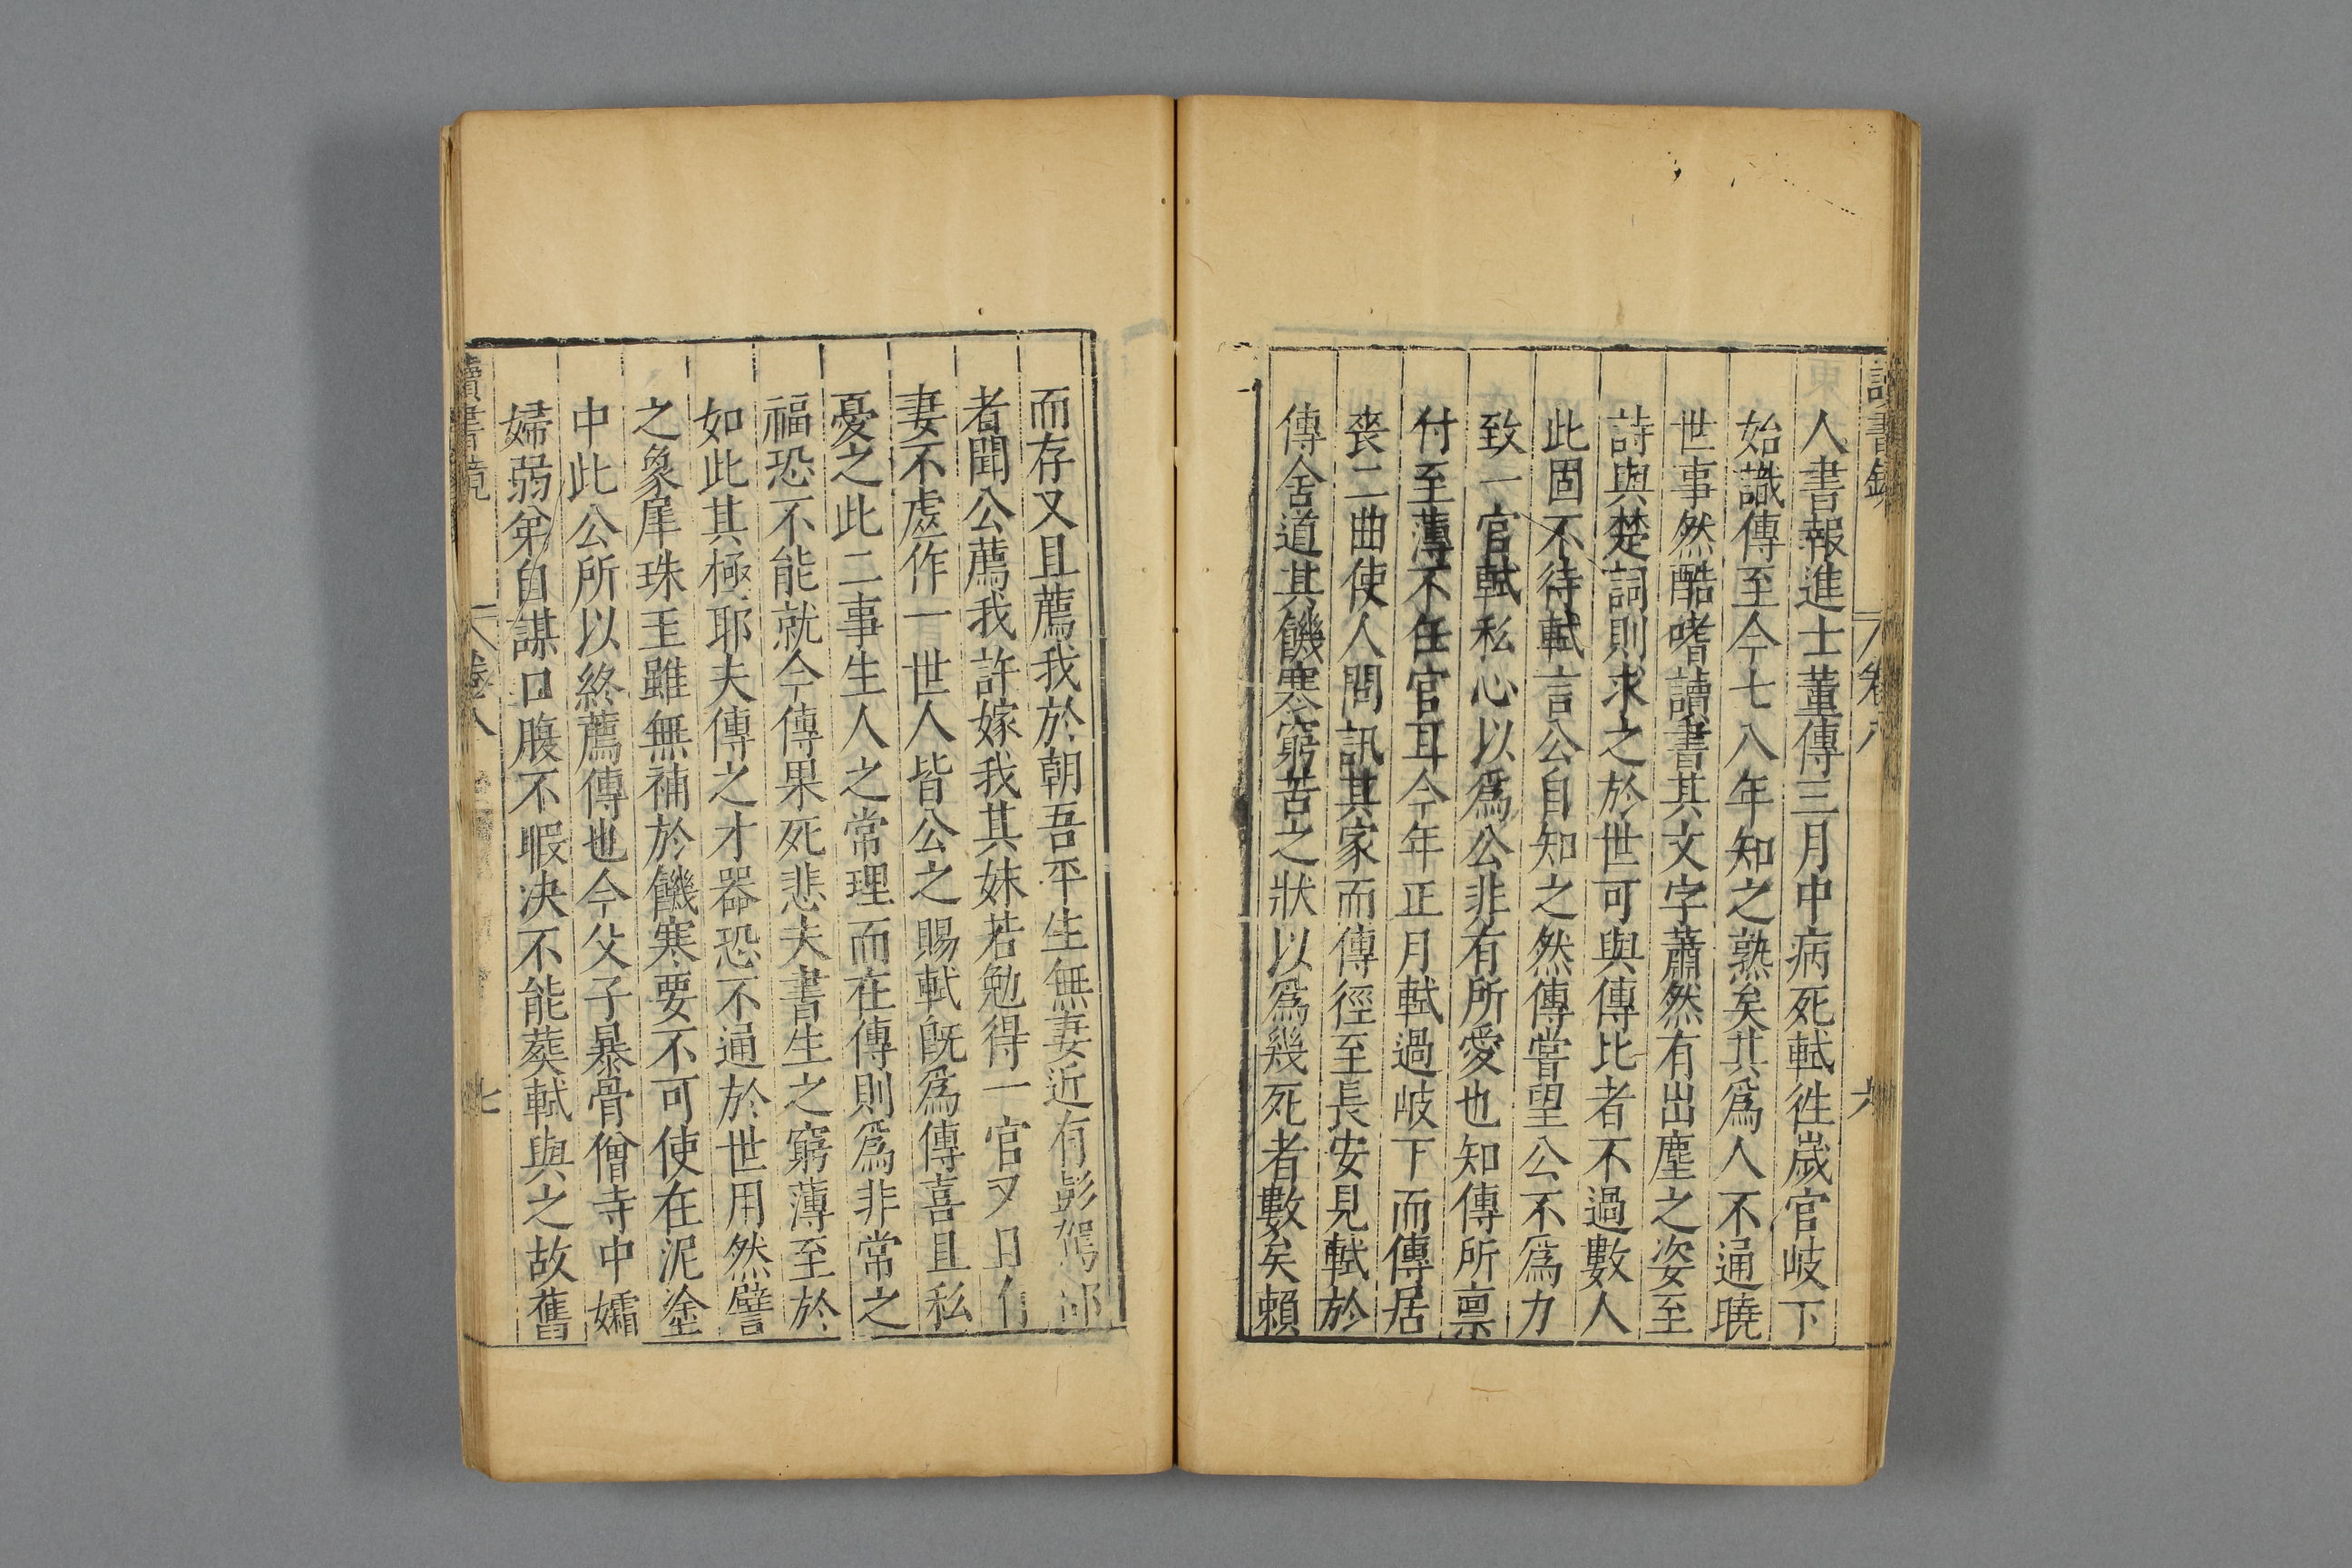 讀書鏡 卷八 六
人書報進士董傳三月中病死軾徃歲官岐下
始識傳至今七八年知之熟矣其爲人不通曉
世事然酷嗜讀書其文字蕭然有出塵之姿至
詩與楚詞則求之於世可與傳比者不過數人
此固不待軾言公自知之然傳嘗望公不爲力
致一官軾私心以爲公非有所愛也知傳所禀
付至薄不任官耳今年正月軾過岐下而傳居
喪二曲使人問訊其家而傳徑至長安見軾於
傳舍道其饑寒窮苦之狀以爲幾死者數矣賴
而存又且薦我於朝吾平生無妻近有彭駕部
者聞公薦我許嫁我其妹若勉得一官又且有
妻不虛作一世人皆公之賜軾旣爲傳喜且私
憂之此二事生人之常理而在傳則爲非常之
福恐不能就今傳果死悲夫書生之窮薄至於
如此其極耶夫傳之才器恐不通於世用然譬
之象犀珠玉雖無補於饑寒要不可使在泥塗
中此公所以終薦傳也今父子暴骨僧寺中孀
婦弱弟自謀口腹不暇决不能葬軾與之故舊
讀書鏡 卷八 七